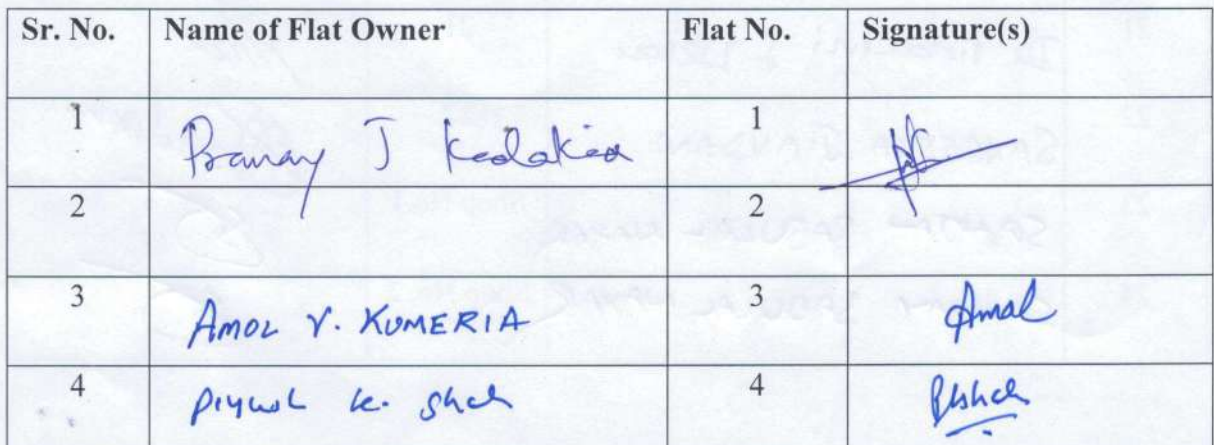 Sr. No. Name of Flat Owner Flat No. Signature(s)
1 Pranay J Kedakia 1
2 2
3 AMOL V. KUMERIA 3 Amol
4 Piyush K. Shah 4 PKShah